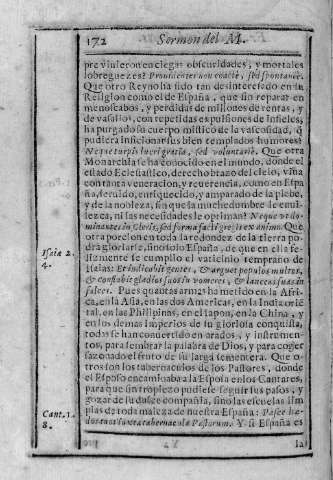 172 Sermon del M.
pre vinieron en ciegas obscuridades, y mortales
lobreguezes? Prouidenter non coactè, sed spontaneè.
Que otro Reyno ha sido tan desinteresado en su
Religion como el de España, que sin reparar en
menoscabos, y perdidas de millones de rentas, y
de vasallos, con repetidas expulsiones de Infieles,
ha purgado su cuerpo mistico de la vascosidad, q̃
pudiera inficionar sus bien templados humores?
Neque turpis lucri gratia, sed voluntariè. Que otra
Monarchia se ha conocido en el mundo, donde el
estado Eclesiastico, derecho brazo del cielo, viua
con tanta veneracion, y reuerencia, como en Espa
ña, seruido, enriquecido, y amparado de la plebe,
y de la nobleza, sin que la muchedumbre le enui-
lezca, ni las necesidades le opriman? Neque vt do-
minantes in Cleris, sed forma facti gregis ex animo. Que
otra porcion en toda la redondez de la tierra podra
gloriarse, sino solo España, de que en ella fe-
lizmente se cumplio el vaticinio temprano de
Isaias: Et iudicabit gentes, & arguet populos multos,
& conflabit gladios suos in vomeres, & lanceas suas in
falces. Pues quantas armas ha metido en la Afri-
ca, en la Asia, en las dos Americas, en la India orie
tal, en las Philipinas, en el Iapon, en la China, y
en los demas Imperios de su gloriosa conquista,
todas se han conuertido en arados, y instrumen-
tos, para sembrar la palabra de Dios, y para coger
sazonado el fruto de su larga sementera. Que o-
tros son los tabernaculos de los Pastores, donde
el Esposo encaminaba a la Esposa en los Cantares,
para que sin tropiezo pudiese seguir sus pasos, y
gozar de su dulce compañia, sino las escuelas sim
plas de toda maleza de nuestra España: Pasce hæ-
dos tuos iuxta tabernacula Pastorum. Y si España es
la
Isaiæ 2.
4.
Cant. 1.
8.